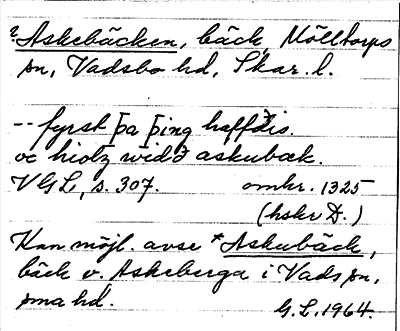 ?Askebäcken, bäck, Mölltorps
sn, Vadsbo hd, Skar. l.
-- fyrst þa þing haffdis.
oc hiolz widð askubæk.
VGL, s. 307. omkr. 1325
(hskr D.)
Kan möjl. avse *Askubäck,
bäck v. Askeberga i Vads sn,
sma hd. G.L. 1964.